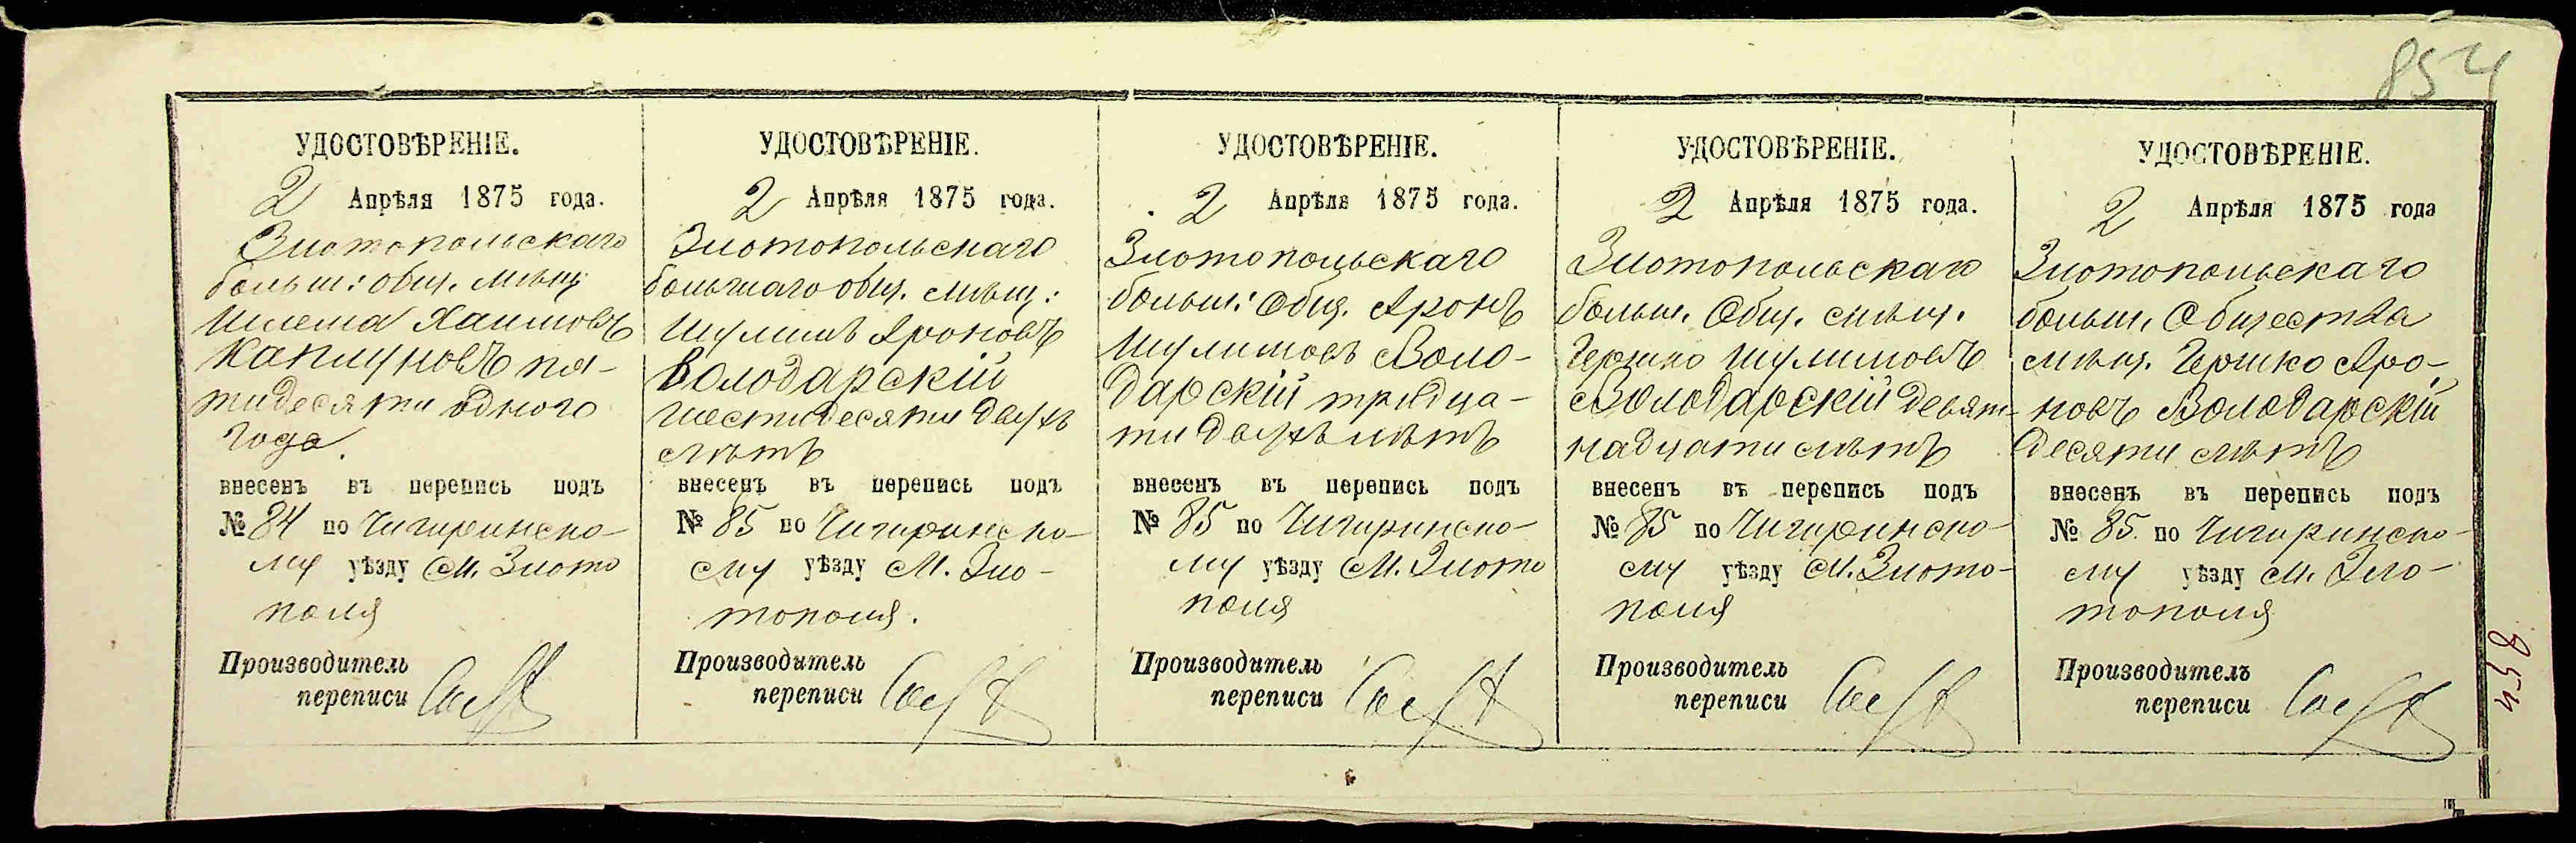 854
УДОСТОВѢРЕНІЕ.
2 Апрѣля 1875 года.
Златопольскаго
больш: общ. мѣщ
Шлема Хаимовъ
Каплуновъ пя-
тидесяти одного
года.
внесенъ въ перепись подъ
№ 84 по Чигиринско-
му уѣзду М. Злато
поля
Производитель
переписи
УДОСТОВѢРЕНІЕ.
2 Апрѣля 1875 года.
Злотопольскаго
большаго общ. мѣщ:
Шулимъ Ароновъ
Володарскій
шестидесяти двухъ
лѣтъ
внесенъ въ перепись подъ
№ 85 по Чигиринско-
му уѣзду М. Зло-
тополя.
Производитель
переписи
УДОСТОВѢРЕНІЕ.
2 Апрѣля 1875 года.
Злотопольскаго
больш: Общ. Аронъ
Шулимовъ Воло-
дарскій тридца-
ти двухъ лѣтъ
внесенъ въ перепись подъ
№ 85 по Чигиринско-
му уѣзду М. Злото
поля
Производитель
переписи
УДОСТОВѢРЕНІЕ.
2 Апрѣля 1875 года.
Злотопольскаго
больш. Общ. мѣщ.
Гершко Шулимовъ
Володарскій девят-
надцати лѣтъ
внесенъ въ перепись подъ
№ 85 по Чигиринско-
му уѣзду М. Злото-
поля
Производитель
переписи
УДОСТОВѢРЕНІЕ.
2 Апрѣля 1875 года
Злотопольскаго
больш. Общества
мѣщ. Гершко Аро-
новъ Володарскій
десяти лѣтъ
внесенъ въ перепись подъ
№ 85. по Чигиринско-
му уѣзду М. Зло-
тополя
Производитель
переписи
854